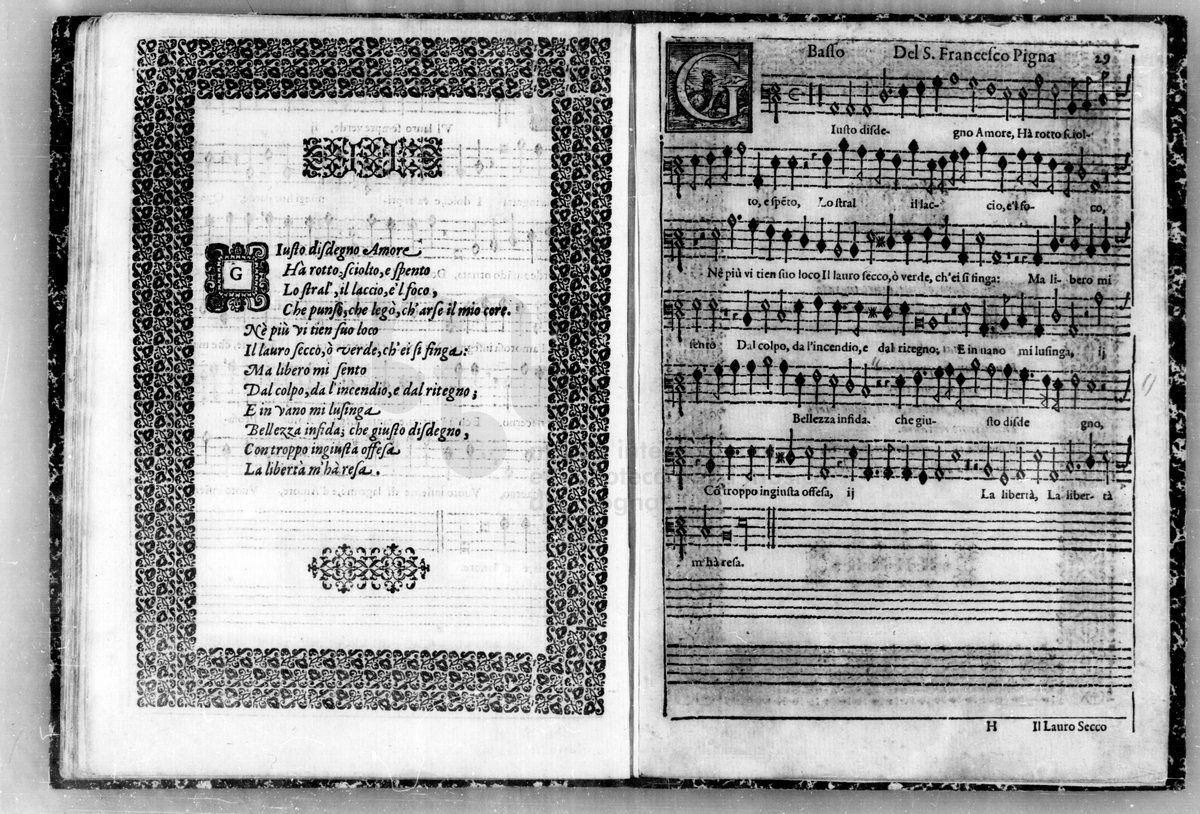 Giusto disdegno Amore
Hà rotto, sciolto, e spento
Lo stral', il laccio, e'l foco,
Che punse, che legò, ch'arse il mio core.
Nè più vi tien suo loco
Il lauro secco, ò verde, ch'ei si finga:
Ma libero mi sento
Dal colpo, da l'incendio, e dal ritegno;
E in vano mi lusinga
Bellezza infida; che giusto disdegno,
Con troppo ingiusta offesa
La libertà m'hà resa.
Basso Del S. Francesco Pigna 29
Giusto disde- gno Amore, Hà rotto sciol-
to, e spẽto, Lo stral il lac- cio, e'l fo- co,
Nè più vi tien suo loco Il lauro secco, ò verde, ch'ei si finga: Ma li- bero mi
sento Dal colpo, da l'incendio, e dal ritegno; E in uano mi lusinga, ij
Bellezza infida. che giu- sto disde gno,
Cõ troppo ingiusta offesa, ij La libertà, La liber- tà
m'hà resa.
H Il Lauro Secco